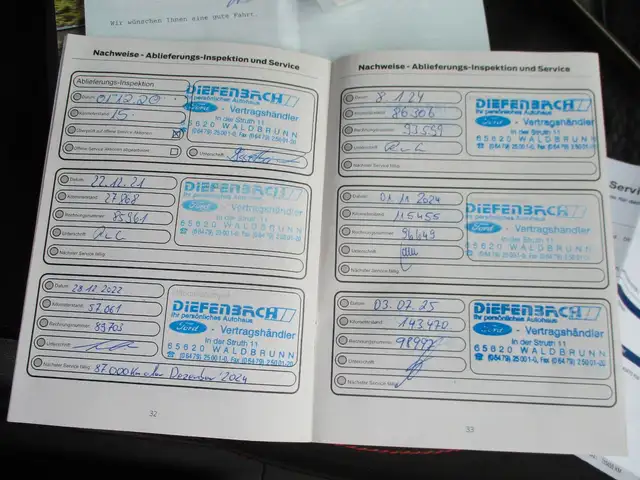 Wir wünschen Ihnen eine gute Fahrt.
Nachweise - Ablieferungs-Inspektion und Service
Ablieferungs-Inspektion
Datum 01.12.20
Kilometerstand 15.
Überprüft auf offene Service-Aktionen
Offene Service-Aktionen abgearbeitet
Unterschrift
DIEFENBACH
Ihr persönliches Autohaus
Ford - Vertragshändler
In der Struth 11
65620 WALDBRUNN
☎ (06479) 2500 1-0, Fax (06479) 25001-20
Datum 22.12.21
Kilometerstand 27868
Rechnungsnummer 85961
Unterschrift
Nächster Service fällig
DIEFENBACH
Ihr persönliches Autohaus
Ford - Vertragshändler
In der Struth 11
65620 WALDBRUNN
☎ (06479) 2500 1-0, Fax (06479) 25001-20
Datum 28.12.2022
Kilometerstand 57.061
Rechnungsnummer 89705
Unterschrift
Nächster Service fällig 87.000 Km oder Dezember 2024
DIEFENBACH
Ihr persönliches Autohaus
Ford - Vertragshändler
In der Struth 11
65620 WALDBRUNN
☎ (06479) 2500 1-0, Fax (06479) 25001-20
32
Nachweise - Ablieferungs-Inspektion und Service
Datum 8.1.24
Kilometerstand 86306
Rechnungsnummer 93599
Unterschrift
Nächster Service fällig
DIEFENBACH
Ihr persönliches Autohaus
Ford - Vertragshändler
In der Struth 11
65620 WALDBRUNN
☎ (06479) 2500 1-0, Fax (06479) 25001-20
Datum 01.11.2024
Kilometerstand 115455
Rechnungsnummer 96649
Unterschrift
Nächster Service fällig
DIEFENBACH
Ihr persönliches Autohaus
Ford - Vertragshändler
In der Struth 11
65620 WALDBRUNN
☎ (06479) 2500 1-0, Fax (06479) 25001-20
Datum 03.07.25
Kilometerstand 143470
Rechnungsnummer 98997
Unterschrift
Nächster Service fällig
DIEFENBACH
Ihr persönliches Autohaus
Ford - Vertragshändler
In der Struth 11
65620 WALDBRUNN
☎ (06479) 2500 1-0, Fax (06479) 25001-20
33